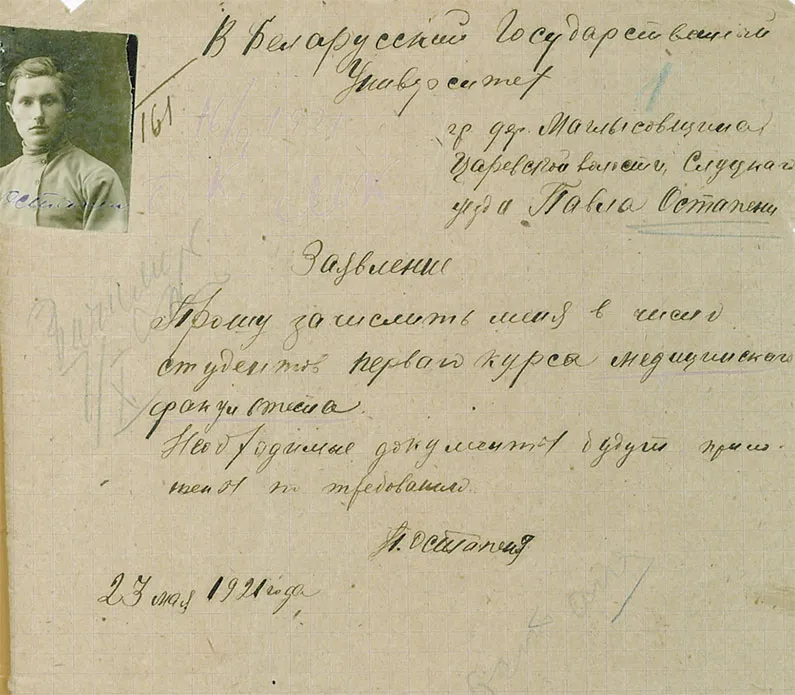 В Белорусский Государственный
Университет
161
1
гр. дер. Маглысовщина
Царевской волости, Слуцкаго
уезда Павла Остапени
Заявление
Прошу зачислить меня в число
студентов перваго курса медицинскаго
факультета.
Необходимые документы будут прило-
жены по требованию.
П. Остапеня
23 мая 1921 года